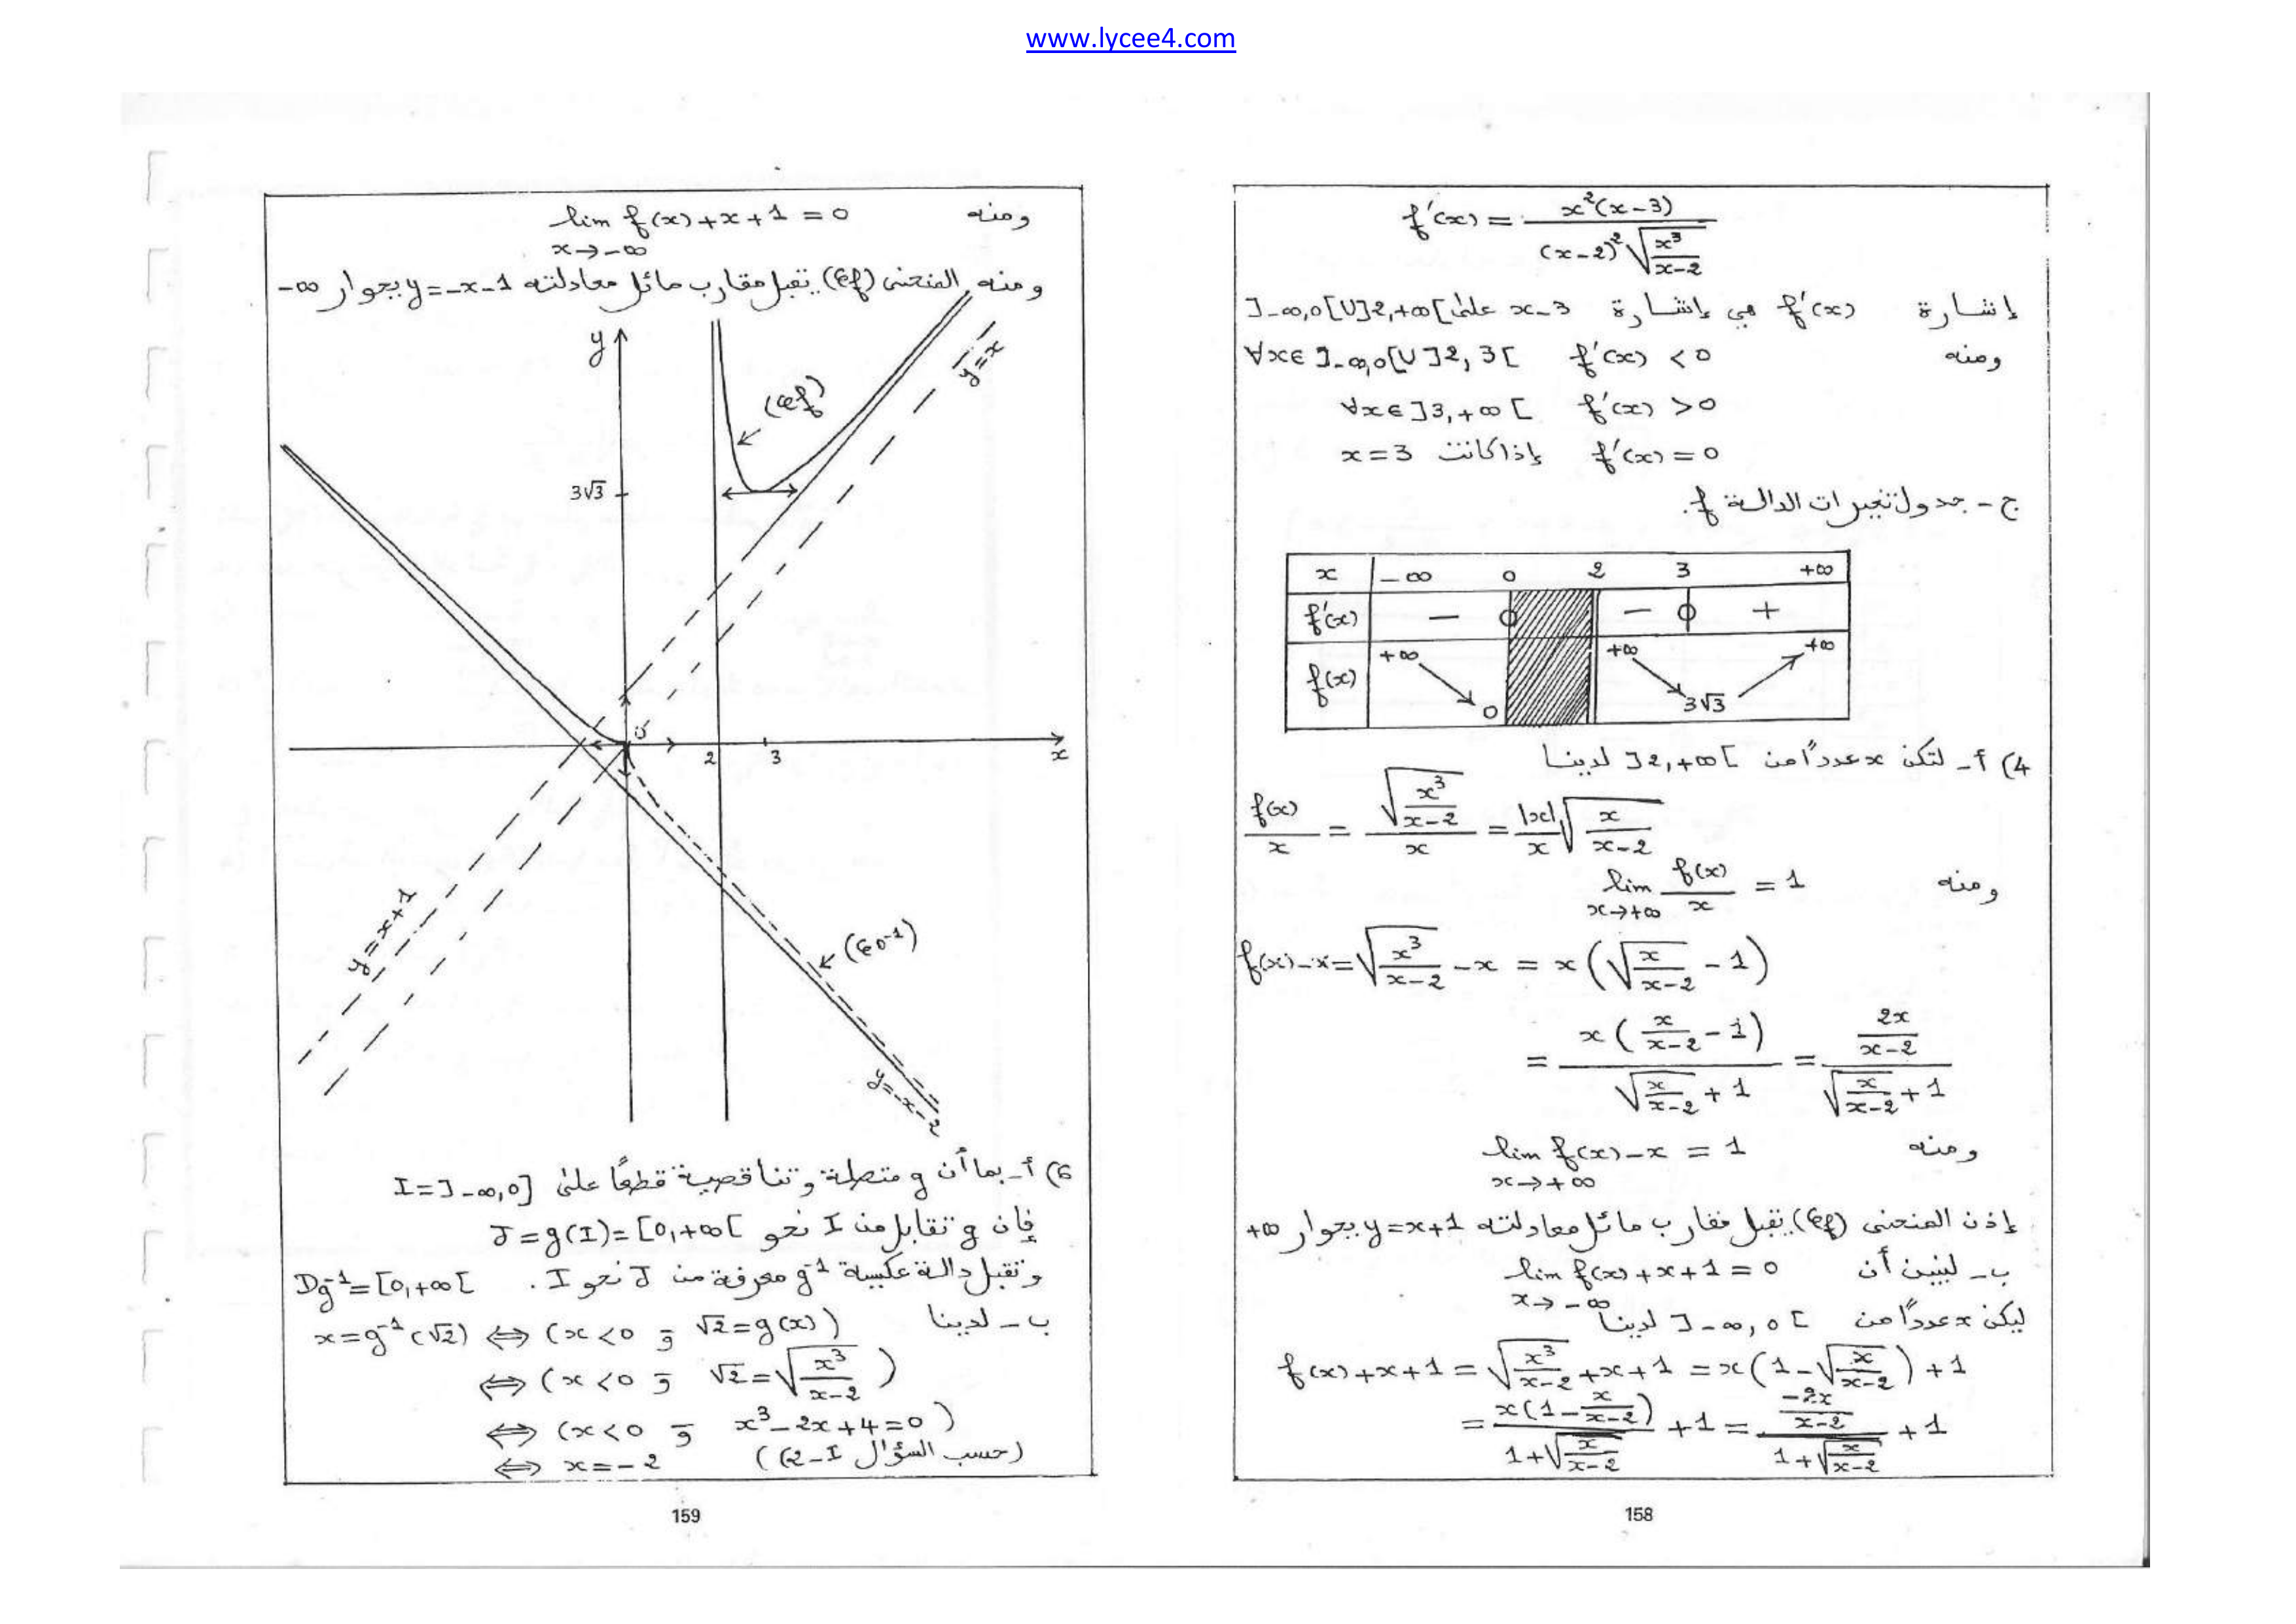 www.lycee4.com
f'(x) = x²(x-3) / ((x-2)²√(x³/(x-2)))
إشارة f'(x) هي إشارة x-3 على ]-∞,0[∪]2,+∞[
ومنه ∀x∈]-∞,0[∪]2,3[ f'(x) < 0
∀x∈]3,+∞[ f'(x) > 0
f'(x) = 0 إذا كانت x = 3
ج - جدول تغيرات الدالة f.
x -∞ 0 2 3 +∞
f'(x) - 0 - 0 +
f(x) +∞ 0 +∞ 3√3 +∞
4) أ - لتكن x عدداً من ]2,+∞[ لدينا
f(x)/x = √(x³/(x-2))/x = |x|/x √(x/(x-2))
ومنه lim x→+∞ f(x)/x = 1
f(x)-x = √(x³/(x-2)) - x = x(√(x/(x-2)) - 1)
= x(x/(x-2) - 1)/(√(x/(x-2)) + 1) = (2x/(x-2))/(√(x/(x-2)) + 1)
ومنه lim x→+∞ f(x)-x = 1
إذن المنحنى (𝒞f) يقبل مقارب مائل معادلته y=x+1 بجوار +∞
ب - لنبين أن lim x→-∞ f(x)+x+1 = 0
ليكن x عدداً من ]-∞,0[ لدينا
f(x)+x+1 = √(x³/(x-2)) + x+1 = x(1-√(x/(x-2))) + 1
= x(1-x/(x-2))/(1+√(x/(x-2))) + 1 = (-2x/(x-2))/(1+√(x/(x-2))) + 1
158
ومنه lim x→-∞ f(x)+x+1 = 0
ومنه المنحنى (𝒞f) يقبل مقارب مائل معادلته y=-x-1 بجوار -∞
y
(𝒞f)
y=x
3√3
0
2
3
x
y=x+1
(𝒞g⁻¹)
y=-x-2
6) أ - بما أن g متصلة وتناقصية قطعاً على I=]-∞,0]
فإن g تقابل من I نحو J=g(I)=[0,+∞[
وتقبل دالة عكسية g⁻¹ معرفة من J نحو I. Dg⁻¹=[0,+∞[
ب - لدينا x=g⁻¹(√2) ⇔ (x<0 و √2=g(x))
⇔ (x<0 و √2=√(x³/(x-2)))
⇔ (x<0 و x³-2x+4=0)
⇔ x=-2 (حسب السؤال I-2))
159